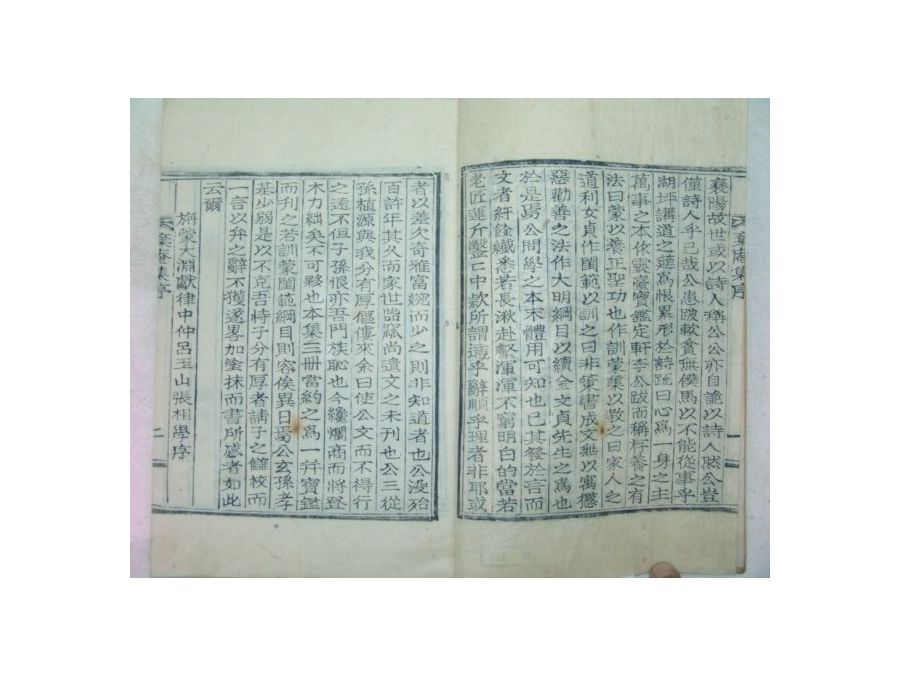 襄陽故世或以詩人稱公公亦自詭以詩人然公豈
僅詩人乎已哉公患跛躄貧無僕馬以不能從事乎
湖坪講道之筵爲恨累形於詩䟽曰心爲一身之主
萬事之本依靈臺寶鑑定軒李公跋而稱存養之有
法曰蒙以養正聖功也作訓蒙集以敎之曰家人之
道利女貞作閨範以訓之曰非策書成文無以寓懲
惡勸善之法作大明綱目以續金文貞先生之爲也
於是焉公問學之本末體用可知也已其發於言而
文者紆餘纎悉若長湫赴壑渾渾不窮明白的當若
老匠運斤鑿鑿中款所謂達乎辭順乎理者非耶或
者以差欠奇雅富婉而少之則非知道者也公沒殆
百許年其久而家世濫竄尚遺文之未刊也公三從
孫植源與我分有厚傴僂來余曰使公文而不得行
之遠不但子孫恨亦吾門族恥也今纔爛商而將登
木力絀矣不可夥也本集三冊當約之爲一幷寶鑑
而刊之若訓蒙閨範綱目則容俟異日焉公玄孫孝
基少弱是以不克吾恃子分有厚者請子之讎校而
一言以弁之辭不獲遂畧加塗抹而書所感者如此
云爾
旃蒙大淵獻律中仲呂玉山張相學序
庵集序
二
庵集序
一